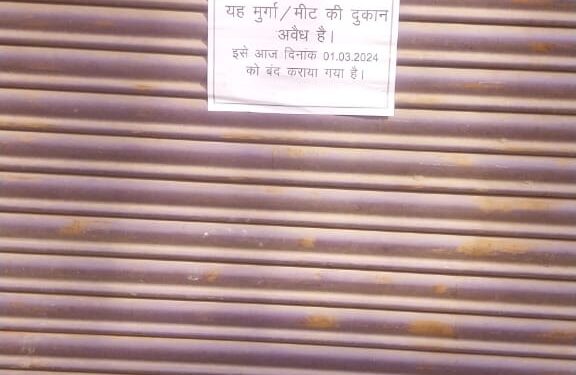 यह मुर्गा/मीट की दुकान
अवैध है।
इसे आज दिनांक 01.03.2024
को बंद कराया गया है।